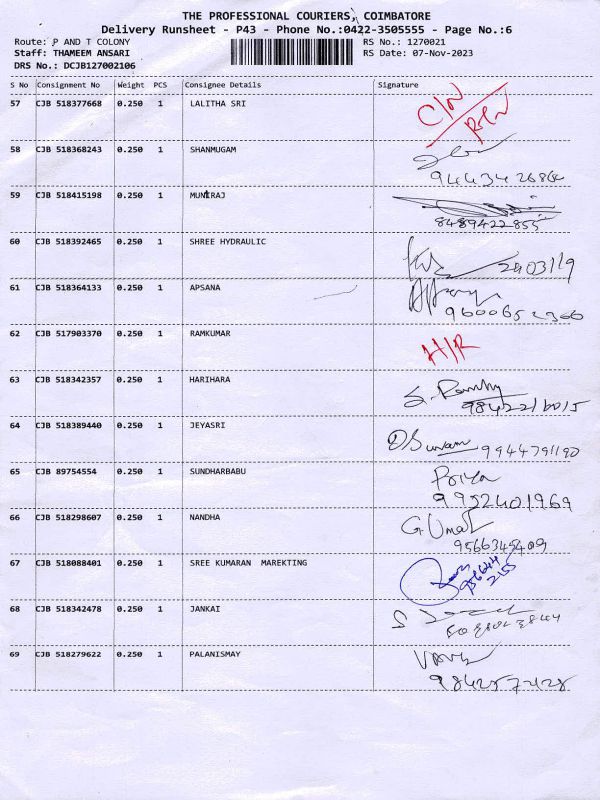 THE PROFESSIONAL COURIERS, COIMBATORE
Delivery Runsheet - P43 - Phone No.:0422-3505555 - Page No.:6
Route: P AND T COLONY RS No.: 1270021
Staff: THAMEEM ANSARI RS Date: 07-Nov-2023
DRS No.: DCJB127002106
S No Consignment No Weight PCS Consignee Details Signature
57 CJB 518377668 0.250 1 LALITHA SRI
58 CJB 518368243 0.250 1 SHANMUGAM
59 CJB 518415198 0.250 1 MUNIRAJ
8489422855
60 CJB 518392465 0.250 1 SHREE HYDRAULIC
61 CJB 518364133 0.250 1 APSANA
9600652366
62 CJB 517903370 0.250 1 RAMKUMAR
H/R
63 CJB 518342357 0.250 1 HARIHARA
64 CJB 518389440 0.250 1 JEYASRI
9944791190
65 CJB 89754554 0.250 1 SUNDHARBABU
Priya
9952401969
66 CJB 518298607 0.250 1 NANDHA
G. Umat
9566345409
67 CJB 518088401 0.250 1 SREE KUMARAN MAREKTING
68 CJB 518342478 0.250 1 JANKAI
69 CJB 518279622 0.250 1 PALANISMAY
9842572428